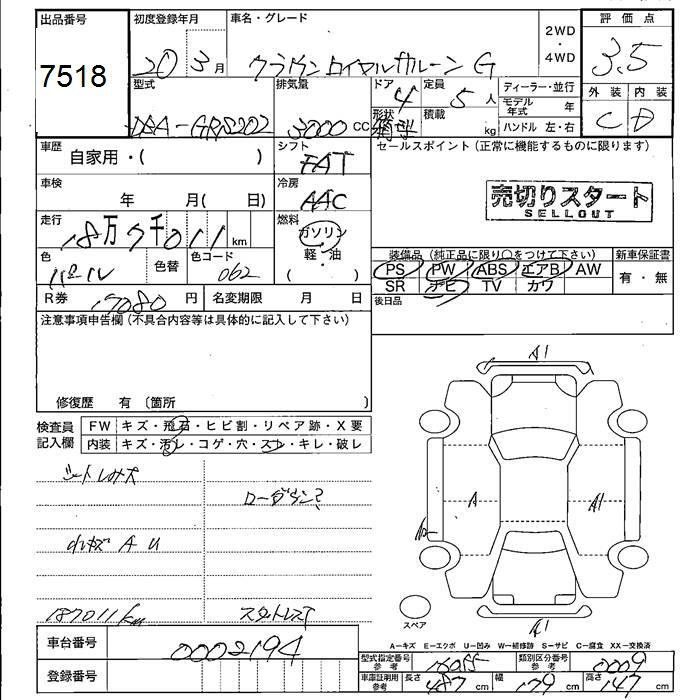 出品番号 初度登録年月 車名・グレード 2WD・4WD 評価点
7518 20 3月 クラウンロイヤルサルーン G 3.5
型式 排気量 ドア 4 定員 5人 ディーラー・並行 外装 内装
DBA-GRS202 3000cc 形状 積載 kg モデル年式 年 C D
ハンドル 左・右
車歴 自家用・( ) シフト FAT セールスポイント(正常に機能するものに限ります)
車検 年 月( 日) 冷房 AAC 売切りスタート
SELLOUT
走行 18万7千011km 燃料 ガソリン・軽・油 ( )
色 パール 色替 色コード 062 装備品(純正品に限り○をつけて下さい) 新車保証書
PS PW ABS エアB AW 有・無
SR ナビ TV カワ
R券 17080円 名変期限 月 日 後日品
注意事項申告欄(不具合内容等は具体的に記入して下さい)
修復歴 有(箇所 )
検査員記入欄 FW キズ・飛石・ヒビ割・リペア跡・X要
内装 キズ・汚レ・コゲ・穴・スレ・キレ・破レ
ローダウン?
小キズ A U
187011km スタットレスT
A1
A
A1
A1
スペア
A=キズ E=エクボ U=凹み W=補修跡 S=サビ C=腐食 XX=交換済
車台番号 0002194
型式指定番号 参考 類別区分番号 参考 0009
登録番号 車庫証明用 参考 長さ 487cm 幅 179cm 高さ 147cm